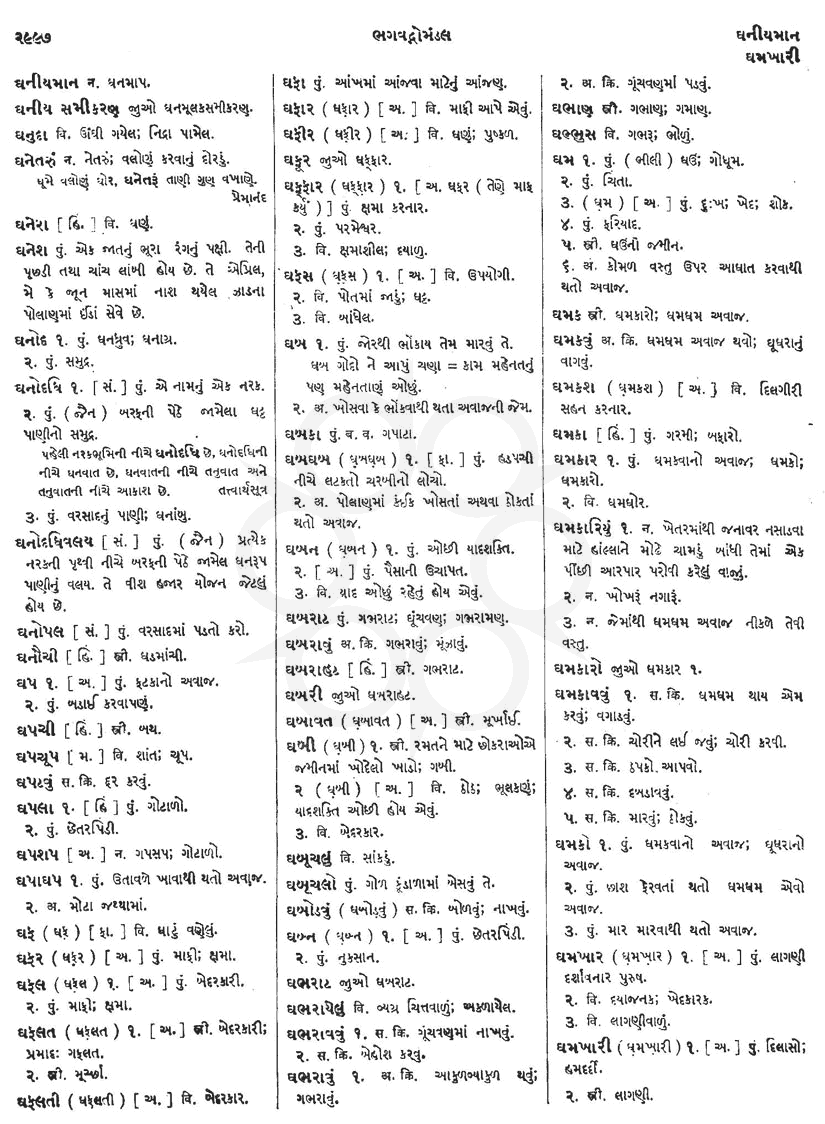 ૨૯૯૭
ભગવદ્ગોમંડલ
ઘનીયમાન
ઘમખારી
ઘનીયમાન ન. ઘનમાપ.
ઘનીય સમીકરણ જુઓ ઘનમૂલકસમીકરણ.
ઘનુદા વિ. ઊંઘી ગયેલ; નિદ્રા પામેલ.
ઘનેતરું ન. નેતરું; વલોણું કરવાનું દોરડું.
ઘૂમે વલોણું ઘોર, ઘનેતરૂં તાણી ગુણ વખાણે.
પ્રેમાનંદ
ઘનેરા [ હિં. ] વિ. ઘણું.
ઘનેશ પું. એક જાતનું ભૂરા રંગનું પક્ષી. તેની
પૂછડી તથા ચાંચ લાંબી હોય છે. તે એપ્રિલ,
મે કે જૂન માસમાં નાશ થયેલ ઝાડના
પોલાણમાં ઈંડાં સેવે છે.
ઘનોદ ૧. પું. ઘનધ્રુવ; ઘનાગ્ર.
૨. પું. સમુદ્ર.
ઘનોદધિ ૧. [ સં. ] પું. એ નામનું એક નરક.
૨. પું. ( જૈન ) બરફની પેઠે જામેલા ઘટ્ટ
પાણીનો સમુદ્ર.
પહેલી નરકભૂમિની નીચે ઘનોદધિ છે, ઘનોદધિની
નીચે ઘનવાત છે, ઘનવાતની નીચે તનુવાત અને
તનુવાતની નીચે આકાશ છે. તત્ત્વાર્થસૂત્ર
૩. પું. વરસાદનું પાણી; ઘનાંબુ.
ઘનોદધિવલય [ સં. ] પું. ( જૈન ) પ્રત્યેક
નરકની પૃથ્વી નીચે બરફની પેઠે જામેલ ઘનરૂપ
પાણીનું વલય. તે વીશ હજાર યોજન જેટલું
હોય છે.
ઘનોપલ [ સં. ] પું. વરસાદમાં પડતો કરો.
ઘનૌચી [ હિં. ] સ્ત્રી. ઘડમાંચી.
ઘપ ૧. [ અ. ] પું. ફટકાનો અવાજ.
૨. પું. બડાઈ કરવાપણું.
ઘપચી [ હિં. ] સ્ત્રી. બથ.
ઘપચૂપ [ મ. ] વિ. શાંત; ચૂપ.
ઘપટવું સ. ક્રિ. દૂર કરવું.
ઘપલા ૧. [ હિં ] પું. ગોટાળો.
૨. પું. છેતરપિંડી.
ઘપશપ [ અ. ] ન. ગપસપ; ગોટાળો.
ઘપાઘપ ૧. પું. ઉતાવળે ખાવાથી થતો અવાજ.
૨. અ. મોટા જથ્થામાં.
ઘફ ( ઘફ઼ ) [ ફા. ] વિ. ઘાટું વણેલું.
ઘફર ( ઘફ઼ર ) [ અ. ] પું. માફી; ક્ષમા.
ઘફલ ( ઘફ઼લ ) ૧. [ અ. ] પું. બેદરકારી.
૨. પું. માફી; ક્ષમા.
ઘફલત ( ઘફ઼લત ) ૧. [ અ. ] સ્ત્રી. બેદરકારી;
પ્રમાદ; ગફલત.
૨. સ્ત્રી. મૂર્ચ્છા.
ઘફલતી ( ઘફ઼લતી ) [ અ. ] વિ. બેદરકાર.
ઘફા પું. આંખમાં આંજવા માટેનું આંજણ.
ઘફાર ( ઘફ઼ાર ) [ અ. ] વિ. માફી આપે એવું.
ઘફીર ( ઘફ઼ીર ) [ અ. ] વિ. ઘણું; પુષ્કળ.
ઘફૂર જુઓ ઘફ્ફાર.
ઘફ્ફાર ( ઘફ઼્ફ઼ાર ) ૧. [ અ. ઘફર ( તેણે માફ
કર્યું ) ] પું. ક્ષમા કરનાર.
૨. પું. પરમેશ્વર.
૩. વિ. ક્ષમાશીલ; દયાળુ.
ઘફસ ( ઘફ઼સ ) ૧. [ અ. ] વિ. ઉપયોગી.
૨. વિ. પોતમાં જાડું; ઘટ્ટ.
૩. વિ. બાંધેલ.
ઘબ ૧. પું. જોરથી ભોંકાય તેમ મારવું તે.
ઘબ ગોદો ને આપું ચણા = કામ મહેનતનું
પણ મહેનતાણું ઓછું.
૨. અ. ખોસવા કે ભોંકવાથી થતા અવાજની જેમ.
ઘબકા પું. બ. વ. ગપાટા.
ઘબઘબ ( ઘ઼બઘ઼બ ) ૧. [ ફા. ] પું. હડપચી
નીચે લટકતો ચરબીનો લોચો.
૨. અ. પોલાણમાં કંઈક ખોસતાં અથવા ઠોકતાં
થતો અવાજ.
ઘબન ( ઘ઼બન ) ૧. પું. ઓછી યાદશક્તિ.
૨. [ અ. ] પું. પૈસાની ઉચાપત.
૩. વિ. યાદ ઓછું રહેતું હોય એવું.
ઘબરાટ પું. ગભરાટ; ઘૂંચવણ; ગભરામણ.
ઘબરાવું અ. ક્રિ. ગભરાવું; મૂંઝાવું.
ઘબરાહટ [ હિં. ] સ્ત્રી. ગભરાટ.
ઘબરી જુઓ ઘબરાહટ.
ઘબાવત ( ઘ઼બાવત ) [ અ. ] સ્ત્રી. મૂર્ખાઈ.
ઘબી ( ઘ઼બી ) ૧. સ્ત્રી. રમતને માટે છોકરાઓએ
જમીનમાં ખોદેલો ખાડો; ગબી.
૨ ( ઘ઼બી ) [ અ. ] વિ. ઠોઠ; ભૂલકણું;
યાદશક્તિ ઓછી હોય એવું.
૩. વિ. બેદરકાર.
ઘબૂચલું વિ. સાંકડું.
ઘબૂચલો પું. ગોળ કૂંડાળામાં બેસવું તે.
ઘબોડવું ( ઘબોડ઼વું ) સ. ક્રિ. બોળવું; નાખવું.
ઘબ્ન ( ઘ઼બ્ન ) ૧. [ અ. ] પું. છેતરપિંડી.
૨. પું. નુકસાન.
ઘભરાટ જુઓ ઘબરાટ.
ઘભરાયેલું વિ. વ્યગ્ર ચિત્તવાળું; અકળાયેલ.
ઘભરાવવું ૧. સ. ક્રિ. ગૂંચવણમાં નાખવું.
૨. સ. ક્રિ. બેહોશ કરવું.
ઘભરાવું ૧. અ. ક્રિ. આકુળવ્યાકુળ થવું;
ગભરાવું.
૨. અ. ક્રિ. ગૂંચવણમાં પડવું.
ઘભાણુ સ્ત્રી. ગભાણુ; ગમાણ.
ઘભ્ભુસ વિ. ગભરૂ; ભોળું.
ઘમ ૧. પું. ( ભીલી ) ઘઉં; ગોધૂમ.
૨. પું. ચિંતા.
૩. ( ઘ઼મ ) [ અ. ] પું. દુઃખ; ખેદ; શોક.
૪. પું. ફરિયાદ.
૫. સ્ત્રી. ઘઉંની જમીન.
૬. અ. કોમળ વસ્તુ ઉપર આઘાત કરવાથી
થતો અવાજ.
ઘમક સ્ત્રી. ઘમકારો; ઘમઘમ અવાજ.
ઘમકવું અ. ક્રિ. ઘમઘમ અવાજ થવો; ઘૂઘરાનું
વાગવું.
ઘમકશ ( ઘ઼મકશ ) [ અ. ] વિ. દિલગીરી
સહન કરનાર.
ઘમકા [ હિં. ] પું. ગરમી; બફારો.
ઘમકાર ૧. પું. ઘમકવાનો અવાજ; ઘમકો;
ઘમકારો.
૨. વિ. ઘમઘોર.
ઘમકારિયું ૧. ન. ખેતરમાંથી જનાવર નસાડવા
માટે હાંલ્લાને મોઢે ચામડું બાંધી તેમાં એક
પીંછી આરપાર પરોવી કરેલું વાજું.
૨. ન. ખોખરૂં નગારૂં.
૩. ન. જેમાંથી ઘમઘમ અવાજ નીકળે તેવી
વસ્તુ.
ઘમકારો જુઓ ઘમકાર ૧.
ઘમકાવવું ૧. સ. ક્રિ. ઘમઘમ થાય એમ
કરવું; વગાડવું.
૨. સ. ક્રિ. ચોરીને લઈ જવું; ચોરી કરવી.
૩. સ. ક્રિ. ઠપકો આપવો.
૪. સ. ક્રિ. દબડાવવું.
૫. સ. ક્રિ. મારવું; ઠોકવું.
ઘમકો ૧. પું. ઘમકવાનો અવાજ; ઘૂઘરાનો
અવાજ.
૨. પું. છાશ ફેરવતાં થતો ઘમઘમ એવો
અવાજ.
૩. પું. માર મારવાથી થતો અવાજ.
ઘમખાર ( ઘ઼મખ઼ાર ) ૧. [ અ. ] પું. લાગણી
દર્શાવનાર પુરુષ.
૨. વિ. દયાજનક; ખેદકારક.
૩. વિ. લાગણીવાળું.
ઘમખારી ( ઘ઼મખ઼ારી ) ૧. [ અ. ] પું. દિલાસો;
હમદર્દી.
૨. સ્ત્રી. લાગણી.